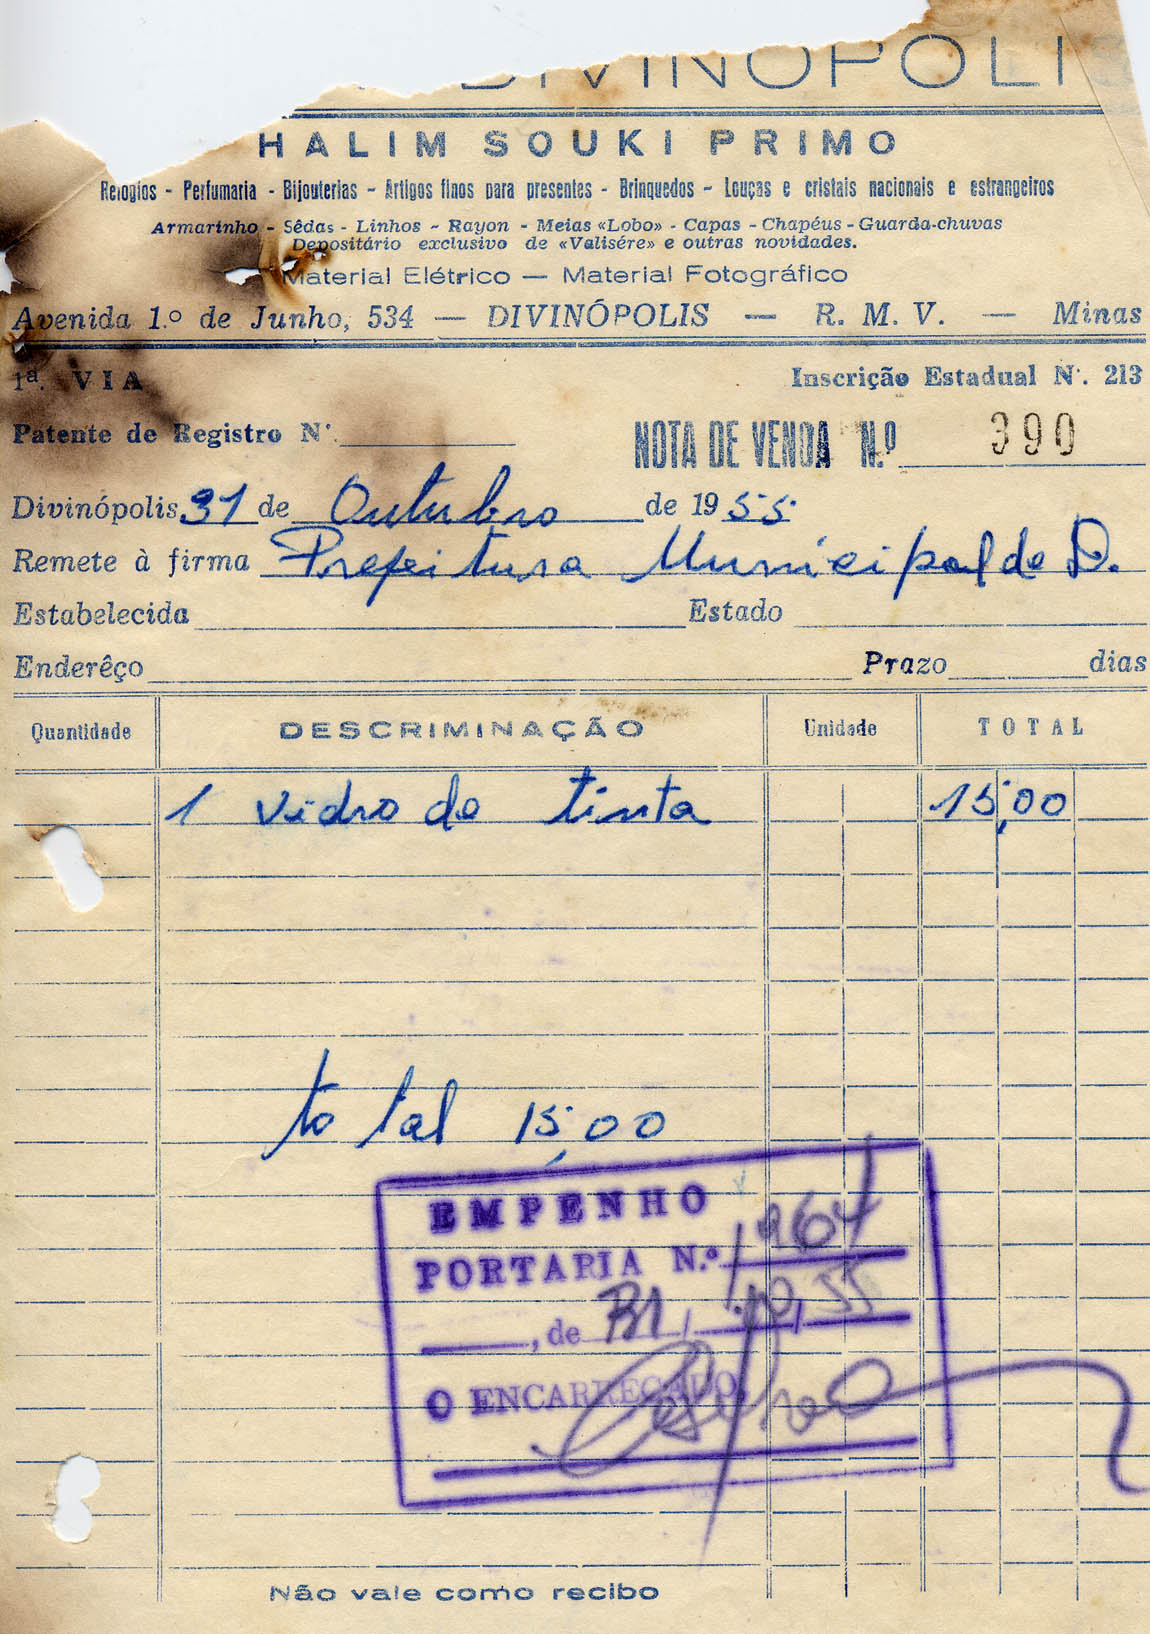 DIVINÓPOLIS
HALIM SOUKI PRIMO
Relogios - Perfumaria - Bijouterias - Artigos finos para presentes - Brinquedos - Louças e cristais nacionais e estrangeiros
Armarinho - Sêdas - Linhos - Rayon - Meias «Lobo» - Capas - Chapéus - Guarda-chuvas
Depositário exclusivo de «Valisére» e outras novidades.
Material Elétrico — Material Fotográfico
Avenida 1.º de Junho, 534 — DIVINÓPOLIS — R. M. V. — Minas
1ª. VIA Inscrição Estadual N. 213
Patente de Registro N. NOTA DE VENDA N.º 390
Divinópolis 31 de Outubro de 1955
Remete à firma Prefeitura Municipal de D.
Estabelecida Estado
Enderêço Prazo dias
Quantidade DESCRIMINAÇÃO Unidade TOTAL
1 vidro de tinta 15,00
total 15,00
EMPENHO
PORTARIA N.º 1964
, de 31, 10, 55
O ENCARREGADO,
Não vale como recibo